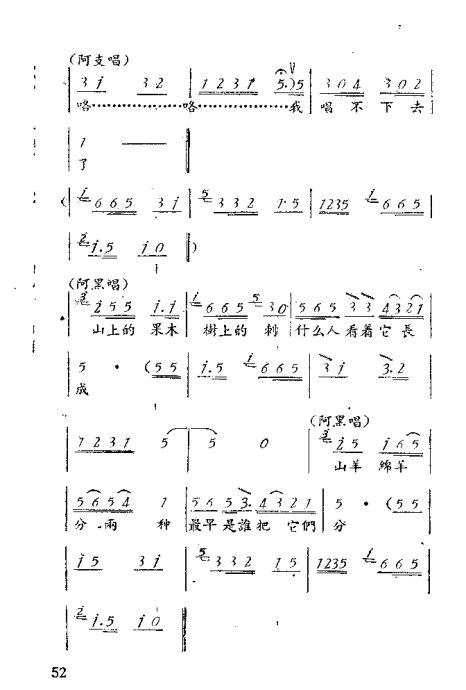 (阿支唱)
3 i 3 2 | 1 2 3 1 5.) 5 | 3 0 4 3 0 2
咯………………咯………………我 唱 不 下 去
1 —
了
( i 6 6 5 3 i | 5 3 3 2 1·5 | 1235 i 6 6 5
2 i.5 i 0 )
(阿黑唱)
3 2 5 5 i.i | i 6 6 5 5 3 0 | 5 6 5 3 3 4 3 2 1
山上的 果木 樹上的 刺 什么人 看着它 長
5 · (5 5 | i.5 i 6 6 5 | 3 i 3.2
成
(阿黑唱)
1 2 3 1 5 | 5 0 | 3 2 5 i 6 5
山羊 綿羊
5 6 5 4 1 | 5 6 5 3. 4 3 2 1 | 5 · (5 5
分 兩 种 最早是誰把 它們 分
i 5 3 i | 5 3 3 2 1 5 | 1235 i 6 6 5
2 i.5 i 0
52